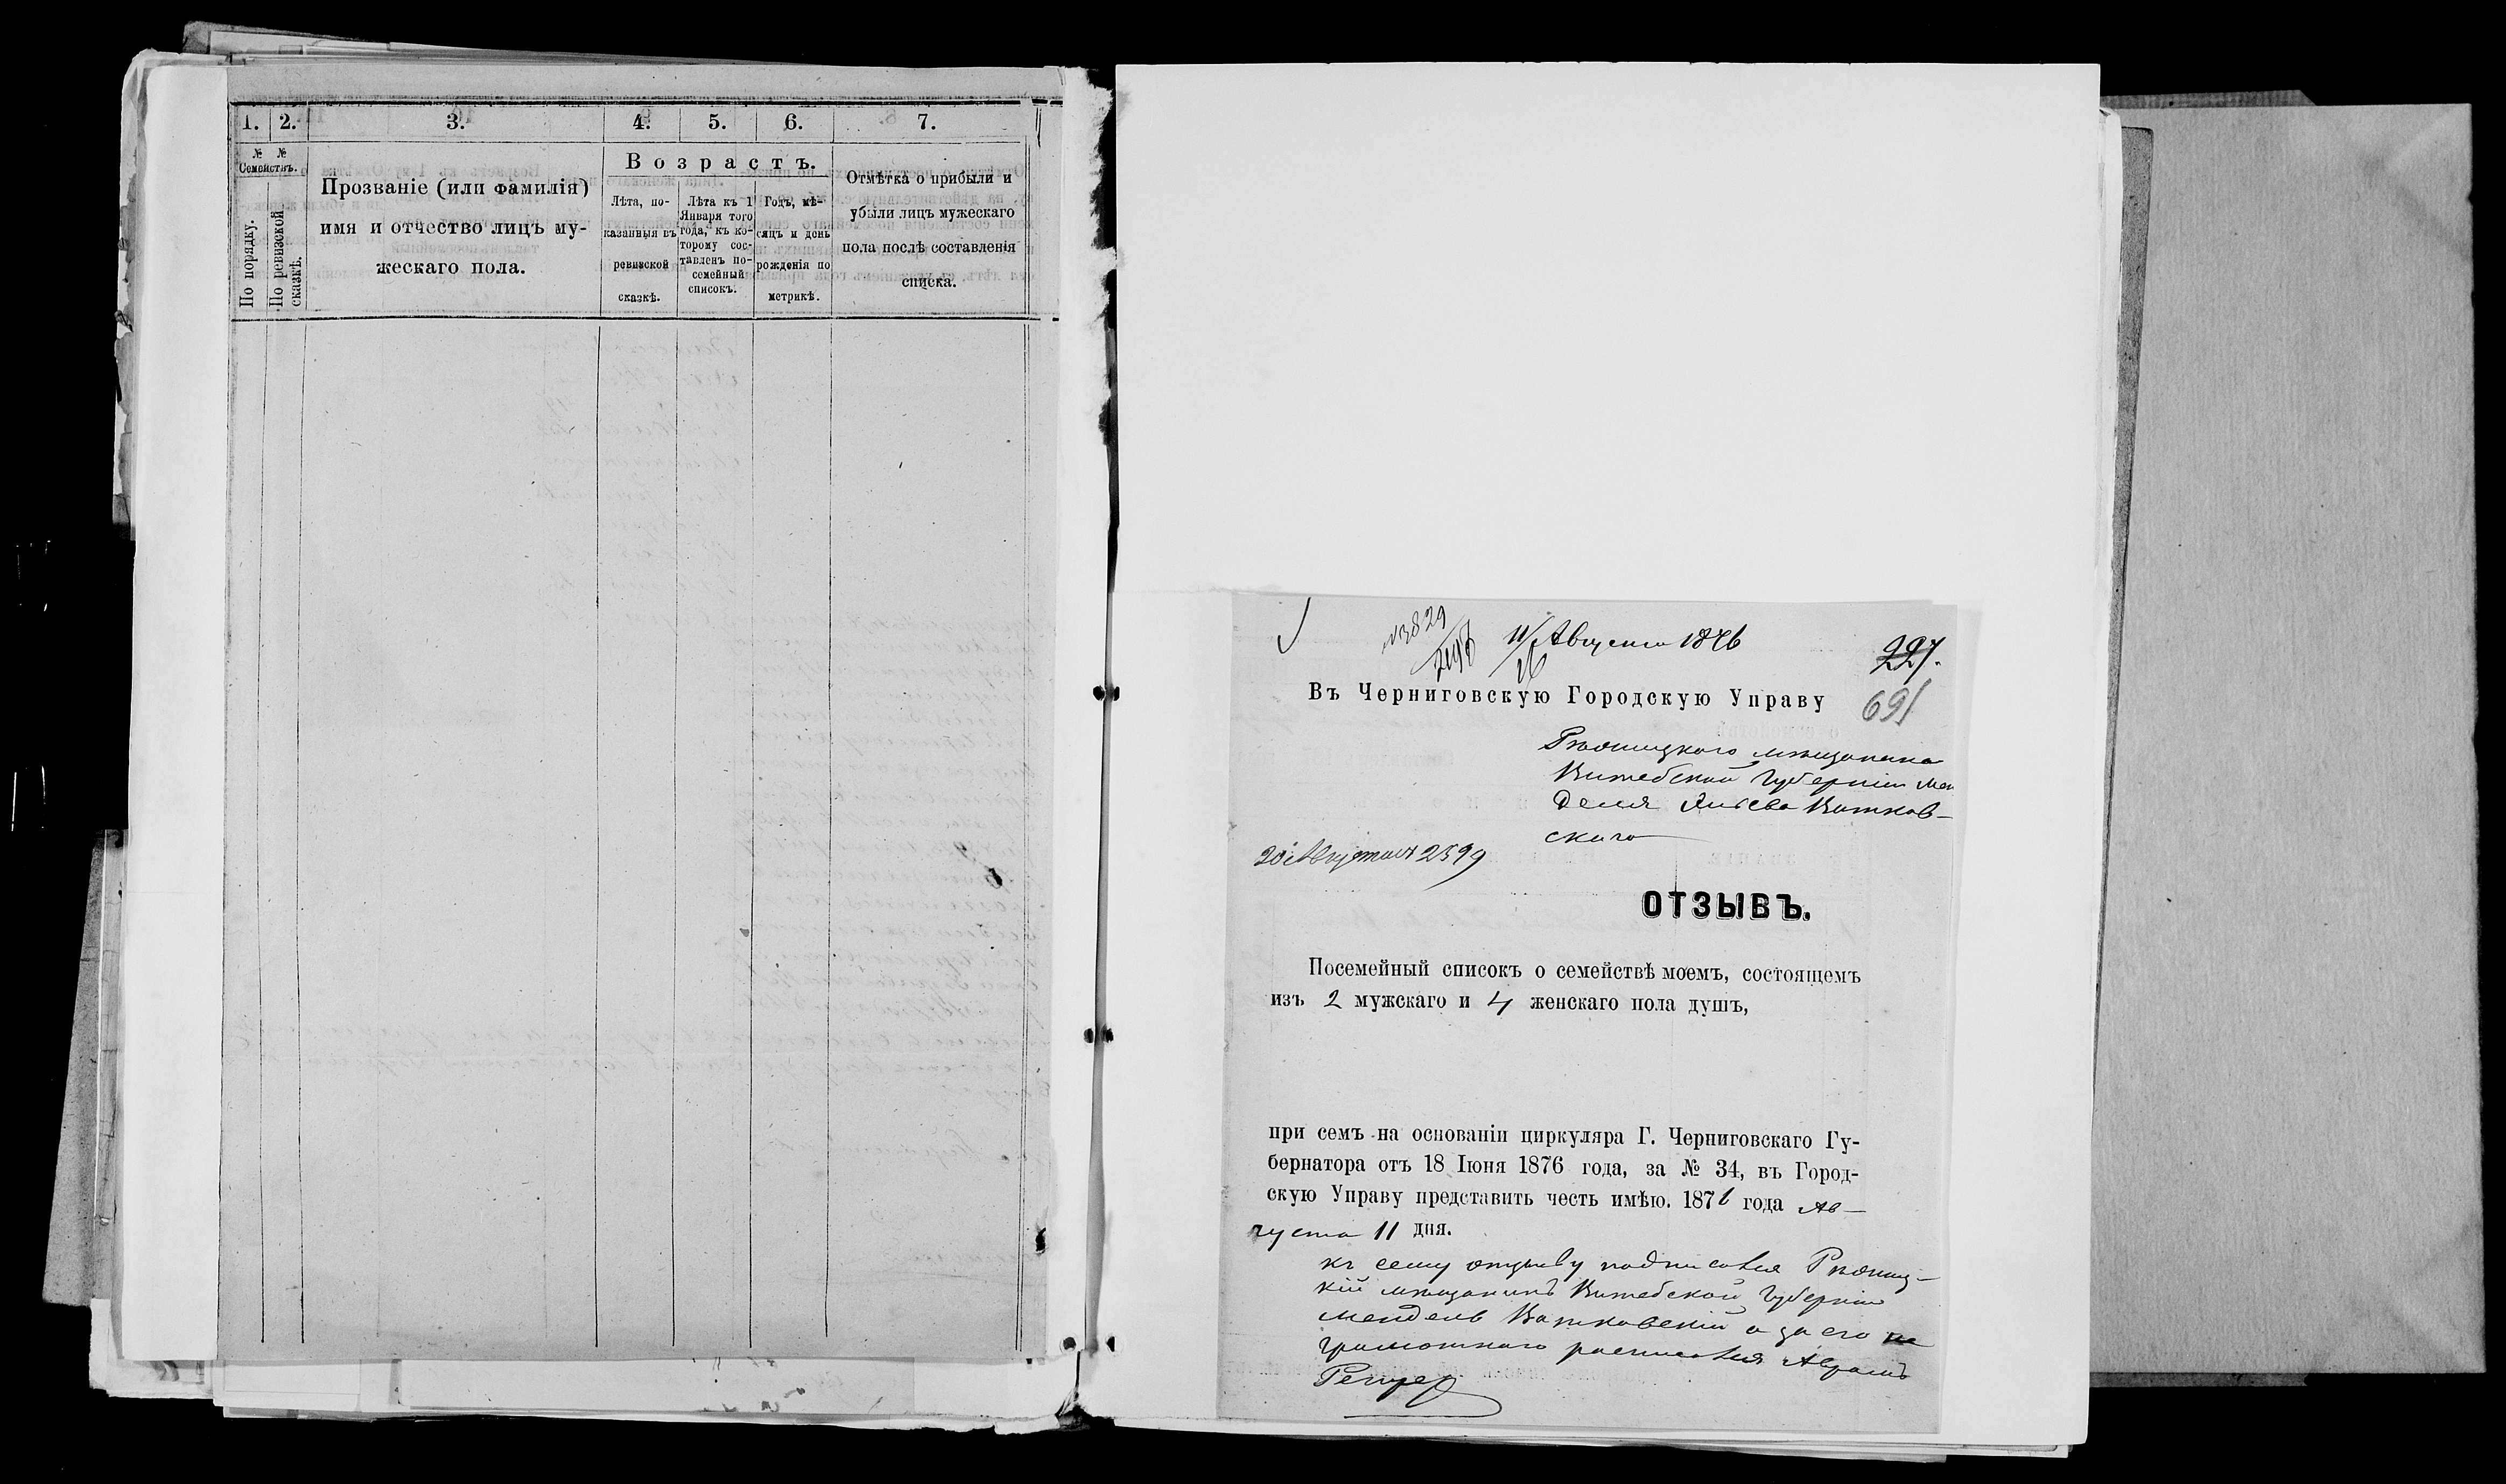 1. 2. 3. 4. 5. 6. 7.
№ № Семействъ.
По порядку.
По ревизской сказкѣ.
Прозваніе (или фамилія)
имя и отчество лицъ му-
жескаго пола.
Возрастъ.
Лѣта, по-
казанныя въ
ревизской
сказкѣ.
Лѣта къ 1
Января того
года, къ ко-
торому сос-
тавленъ по-
семейный
списокъ.
Годъ, мѣ-
сяцъ и день
рожденія по
метрикѣ.
Отмѣтка о прибыли и
убыли лицъ мужескаго
пола послѣ составленія
списка.
№ 3829
11 Августа 1876
16
227.
691
Въ Черниговскую Городскую Управу
Рѣжицкаго мѣщанина
Витебской Губерніи Мен
деля Витков-
скаго
20 Августа № 2599
ОТЗЫВЪ.
Посемейный списокъ о семействѣ моемъ, состоящемъ
изъ 2 мужскаго и 4 женскаго пола душъ,
при семъ на основаніи циркуляра Г. Черниговскаго Гу-
бернатора отъ 18 Іюня 1876 года, за № 34, въ Город-
скую Управу представить честь имѣю. 1876 года Ав-
густа 11 дня.
къ сему отзыву подписался Рѣжиц-
кій мѣщанинъ Витебской Губерніи
Мендель Витковскій а за его не
грамотнаго расписался Абрамъ